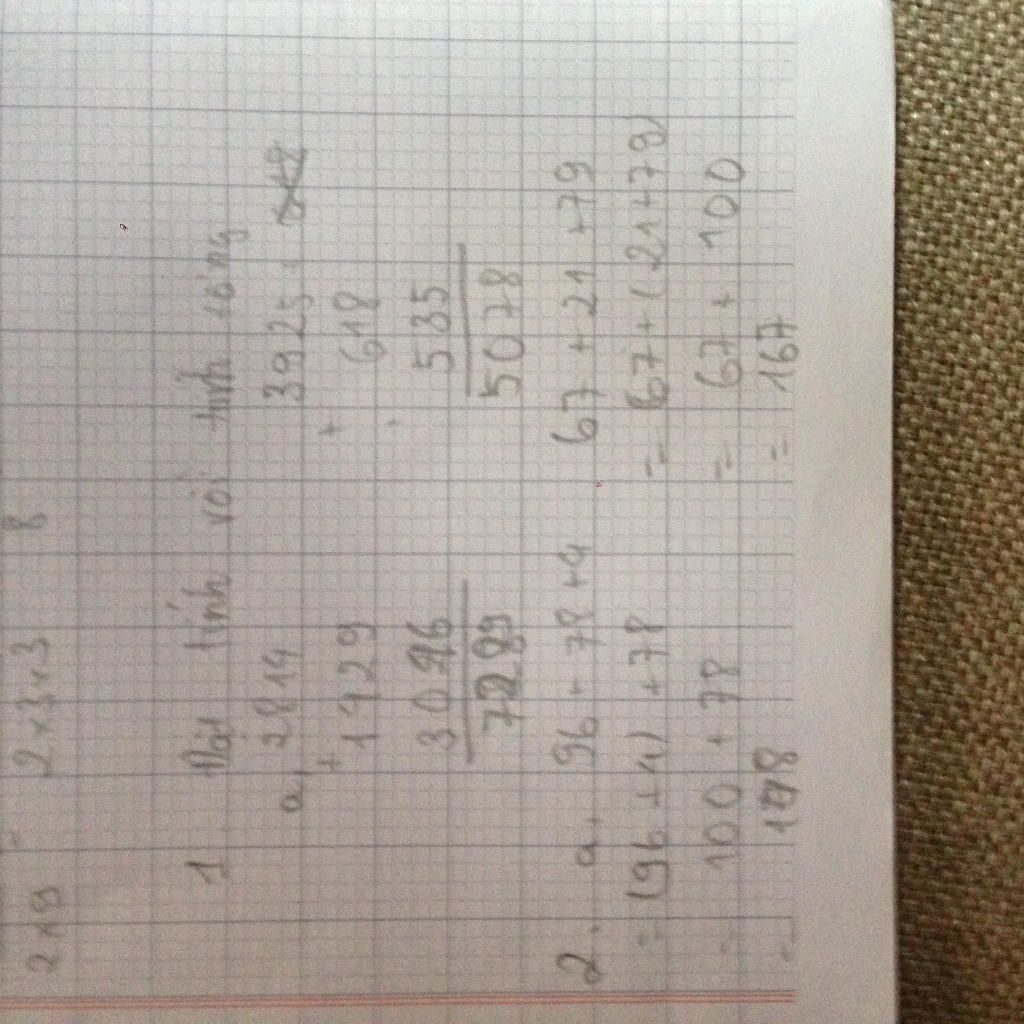 2 x 9 2 x 3 x 3 8
1 Đặt tính rồi tính tổng
a, 2814 3925
+ 1929 + 618
3046 535
7289 5078
2. a, 96 + 78 + 4 67 + 21 + 79
= (96 + 4) + 78 = 67 + (21+79)
= 100 + 78 = 67 + 100
= 178 = 167